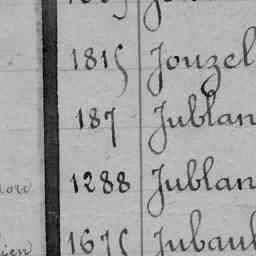 1815 Jouzel
187 Jublan
1288 Jublan
1675 Jubaul